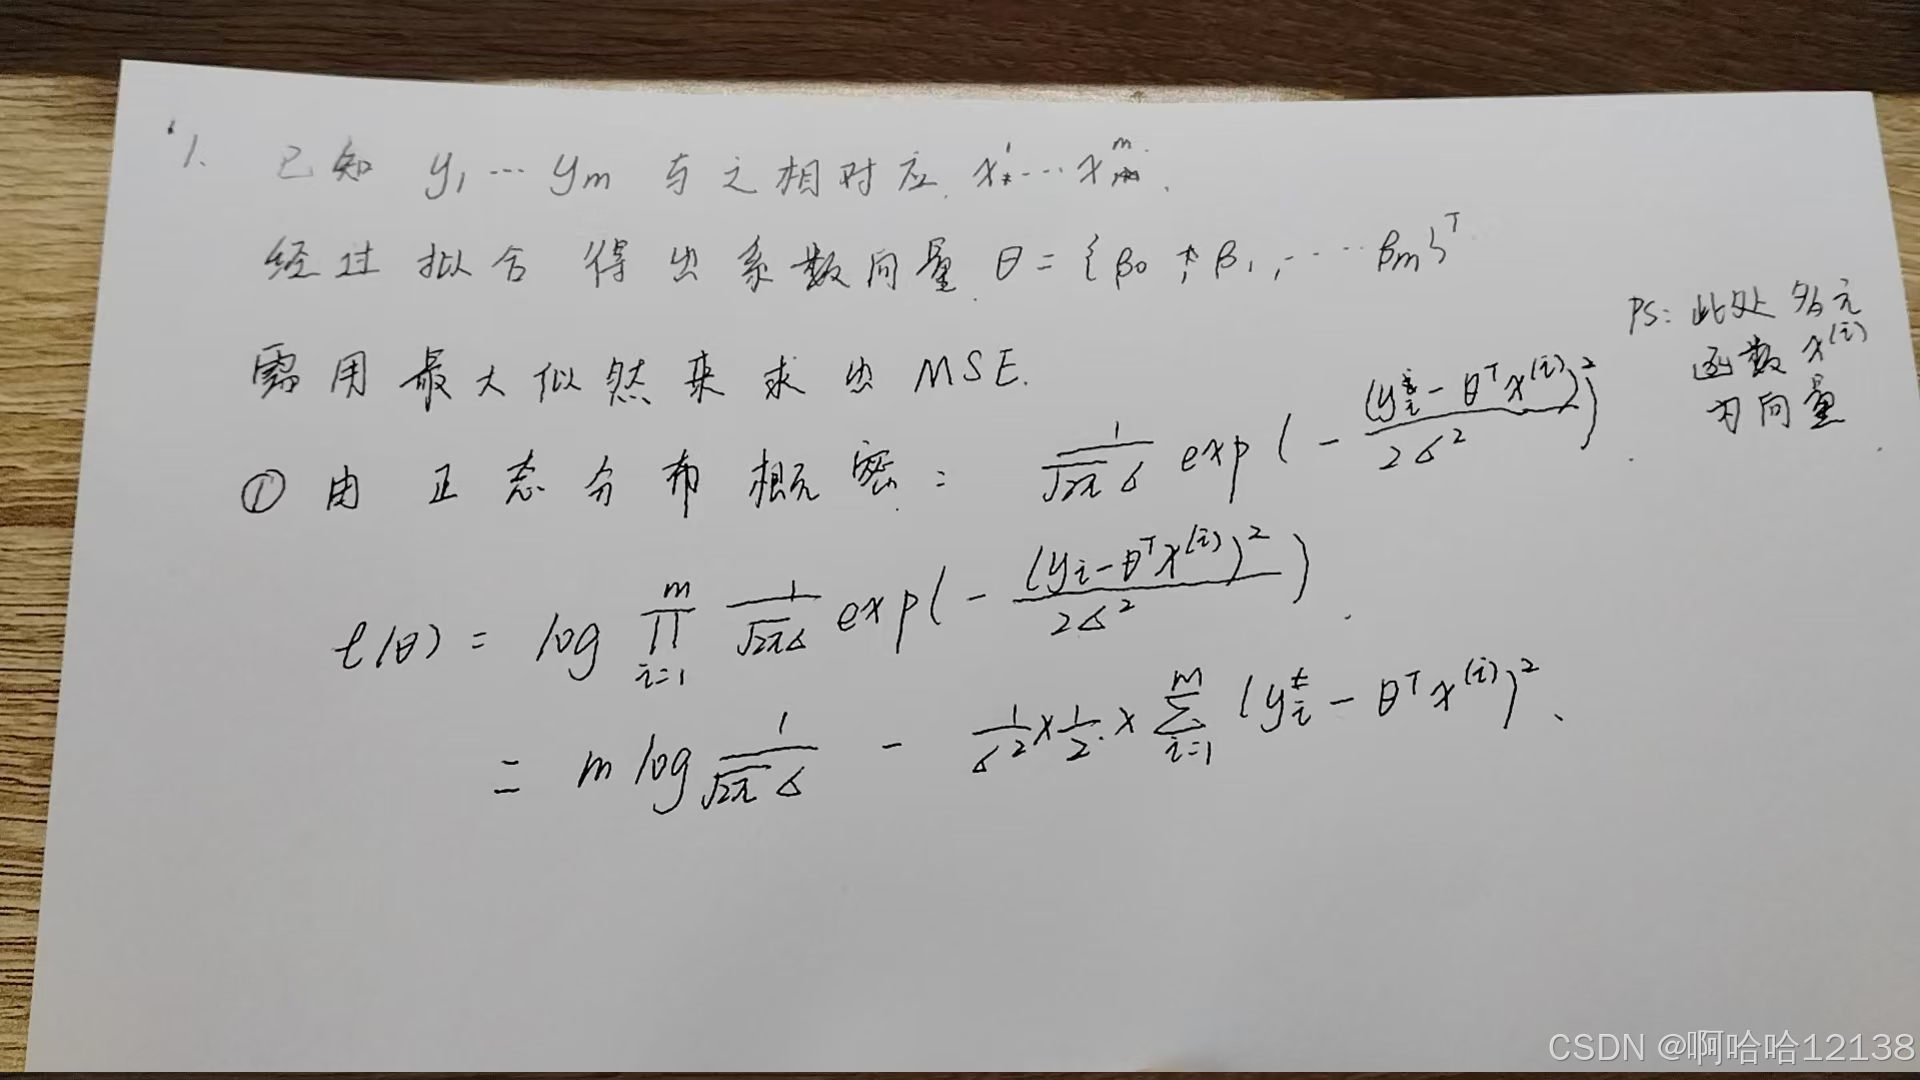 1. 已知 y₁ … yₘ 与之相对应 x¹ … xᵐ.
经过拟合得出系数向量 θ = {β₀, β₁, … βₘ}ᵀ
需用最大似然来求出 MSE.
PS: 此处多元
函数 x⁽ⁱ⁾
为向量
① 由正态分布概密: 1/(√2π σ) exp(- (yᵢ - θᵀx⁽ⁱ⁾)²/2σ²)
ℓ(θ) = log ∏ᵢ₌₁ᵐ 1/(√2π σ) exp(- (yᵢ - θᵀx⁽ⁱ⁾)²/2σ²)
= m log 1/(√2π σ) - 1/σ² × 1/2 × ∑ᵢ₌₁ᵐ (yᵢ - θᵀx⁽ⁱ⁾)²
CSDN @啊哈哈12138